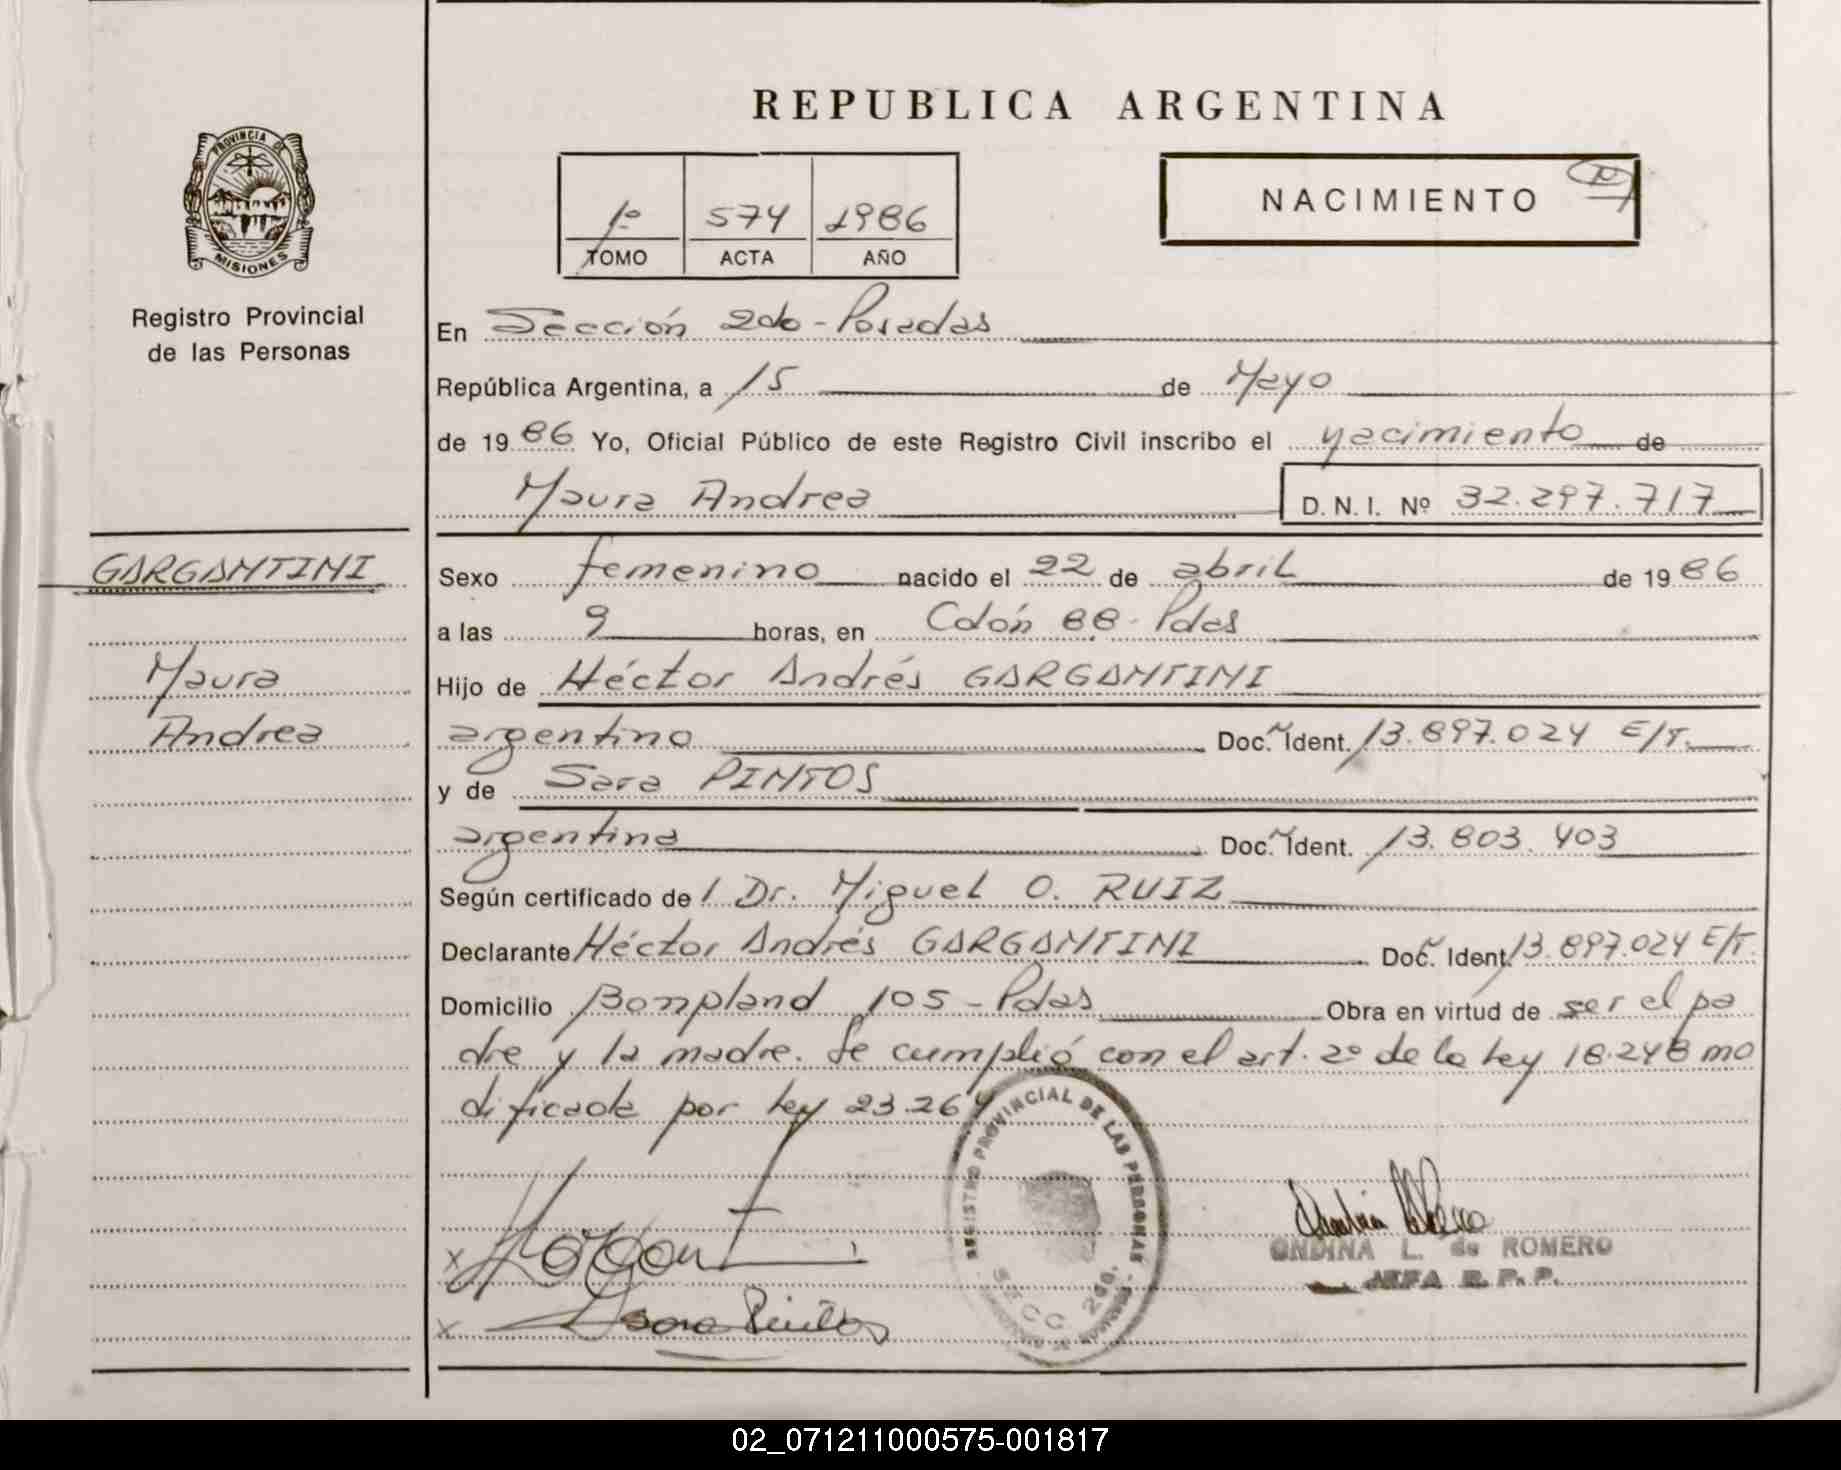 REPUBLICA ARGENTINA
PROVINCIA DE
MISIONES
Registro Provincial
de las Personas
1º 574 1986
TOMO ACTA AÑO
NACIMIENTO
En Sección 2da - Posadas
República Argentina, a 15 de Mayo
de 1986 Yo, Oficial Público de este Registro Civil inscribo el nacimiento de
Maura Andrea D.N.I. Nº 32.297.717
GARGANTINI
Maura
Andrea
Sexo femenino nacido el 22 de abril de 1986
a las 9 horas, en Colón 88 - Pdas
Hijo de Héctor Andrés GARGANTINI
argentino Doc. Ident. 13.897.024 E/T.
y de Sara PINTOS
argentina Doc. Ident. 13.803.403
Según certificado de / Dr. Miguel O. RUIZ
Declarante Héctor Andrés GARGANTINI Doc. Ident. 13.897.024 E/T.
Domicilio Bompland 105 - Pdas Obra en virtud de ser el pa
dre y la madre. Se cumplió con el art. 2º de la Ley 18.248 mo
dificada por Ley 23.264
REGISTRO PROVINCIAL DE LAS PERSONAS
SECC 2da.
x
x Sara Pintos
ONDINA L. de ROMERO
JEFA R. P. P.
02_071211000575-001817